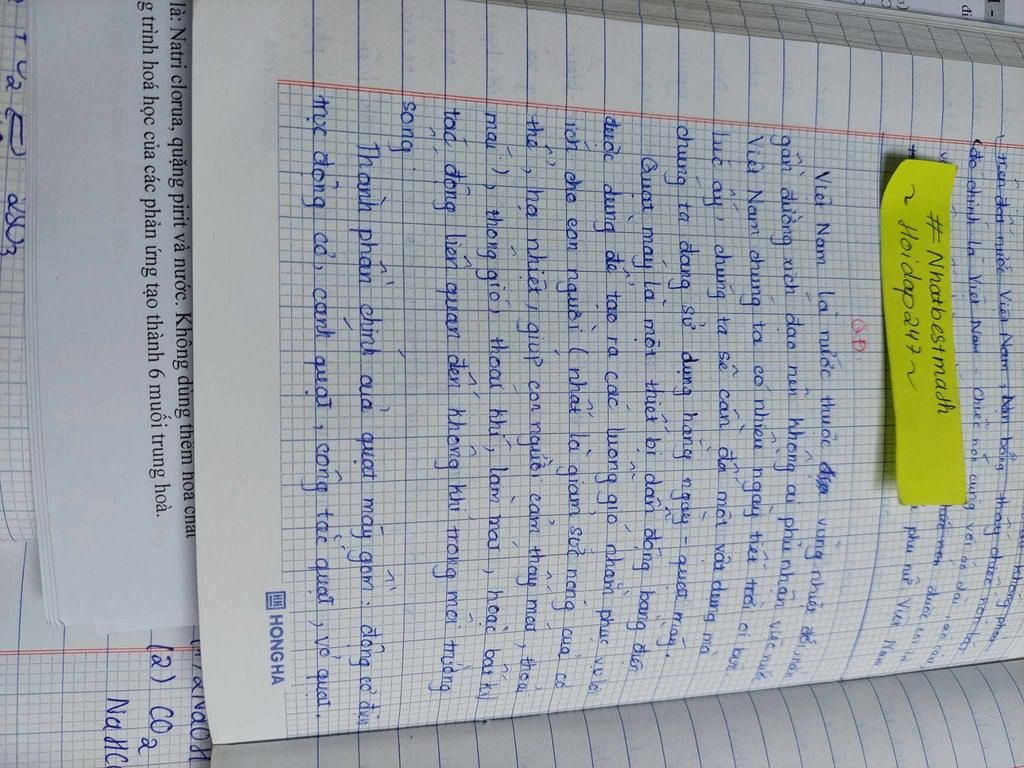 #Nhatbestmdth
~ Hoidap247 ~
QĐ
Việt Nam là nước thuộc vùng nhiệt đới nằm
gần đường xích đạo nên không ai phủ nhận việc nước
Việt Nam chúng ta có nhiều ngày tiết trời oi bức.
Lúc ấy, chúng ta sẽ cần đến một vật dụng mà
chúng ta đang sử dụng hàng ngày - quạt máy.
Quạt máy là một thiết bị dẫn động bằng điện
được dùng để tạo ra các luồng gió nhằm phục vụ lợi
ích cho con người (nhất là giảm sức nóng của cơ
thể, hạ nhiệt, giúp con người cảm thấy mát, thoải
mái), thông gió, thoát khí, làm mát, hoặc bất kỳ
tác động liên quan đến không khí trong môi trường
sống.
Thành phần chính của quạt máy gồm: động cơ điện
trục động cơ, cánh quạt, công tắc quạt, vỏ quạt.
HONG HA
là: Natri clorua, quặng pirit và nước. Không dùng thêm hóa chất
trình hoá học của các phản ứng tạo thành 6 muối trung hoà.
(2) CO2